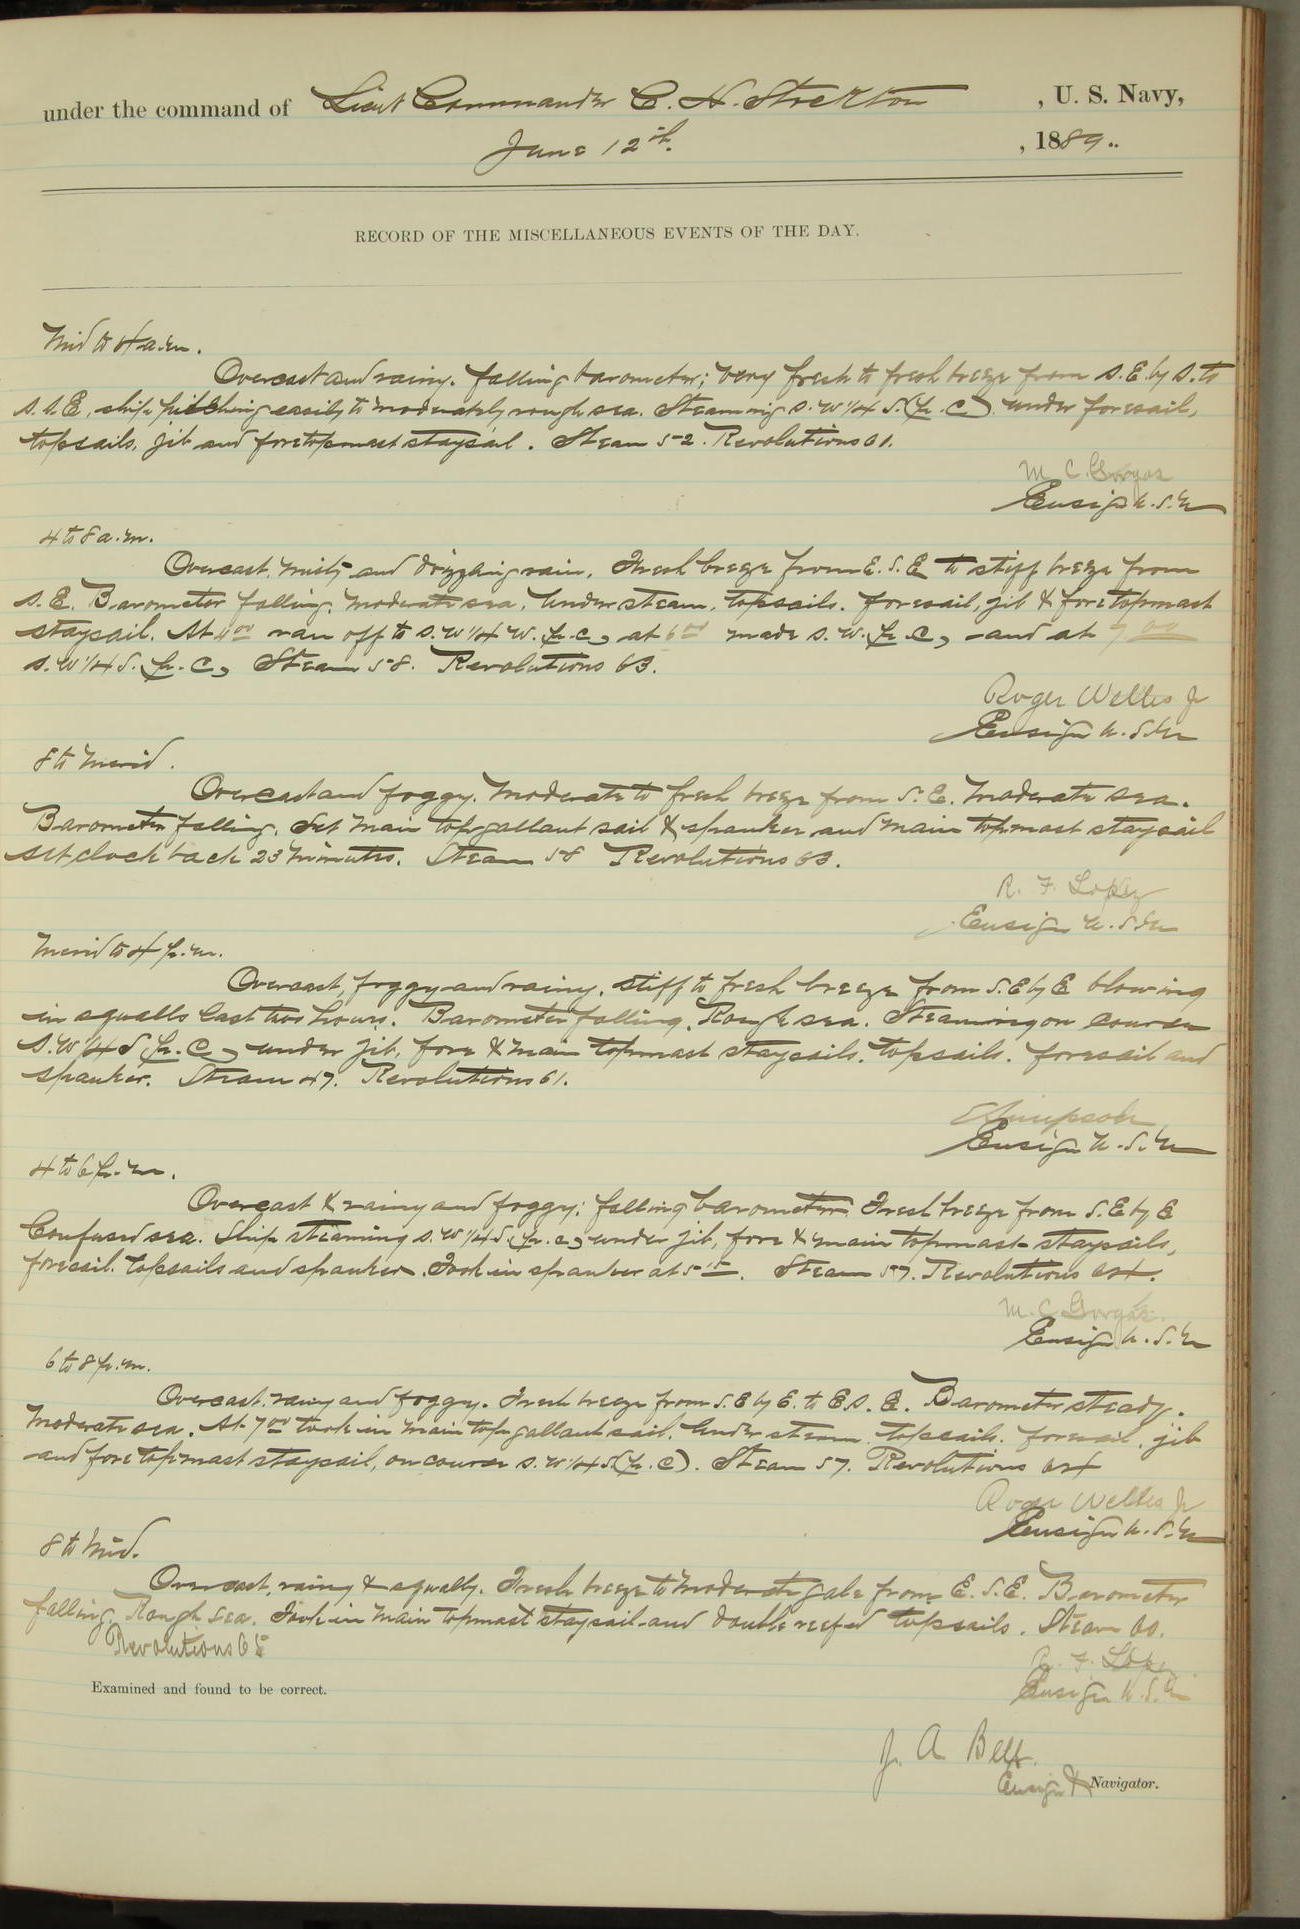 under the command of Lieut Commander C. H. Stockton , U. S. Navy,
June 12th. , 1889.
RECORD OF THE MISCELLANEOUS EVENTS OF THE DAY.
Mid to 4 a.m.
Overcast and rainy. falling barometer; very fresh to fresh breeze from S.E. by S. to
S.S.E., ship pitching easily to moderately rough sea. Steaming S.W 1/4 S. (p. c.) under foresail,
topsails, jib and foretopmast staysail. Steam 52. Revolutions 61.
M C. Gorgas
Ensign U.S.N
4 to 8 a.m.
Overcast, misty and drizzling rain. Fresh breeze from E.S.E to stiff breeze from
S.E. Barometer falling. Moderate sea. Under steam, topsails, foresail, jib & foretopmast
staysail. At 4 00 ran off to S.W 1/4 W. (p. c.), at 6 00 made S.W. (p. c.), and at 7 00
S.W 1/4 S. (p. c.), Steam 58. Revolutions 63.
Roger Welles Jr
Ensign U.S.N
8 to Merid.
Overcast and foggy. Moderate to fresh breeze from S.E. Moderate sea.
Barometer falling. Set main topgallant sail & spanker and main topmast staysail
set clock back 23 minutes. Steam 58 Revolutions 63.
R. F. Lopez
Ensign U.S.N
Merid to 4 p.m.
Overcast, foggy and rainy, stiff to fresh breeze from S.E by E blowing
in squalls last two hours. Barometer falling. Rough sea. Steaming on course
S.W 1/4 S (p. c.) under jib, fore & main topmast staysails, topsails, foresail and
spanker. Steam 47. Revolutions 61.
E Simpson
Ensign U.S.N
4 to 6 p.m.
Overcast & rainy and foggy; falling barometer. Fresh breeze from S.E by E
Confused sea. Ship steaming S.W 1/4 S. (p. c.) under jib, fore & main topmast staysails,
foresail, topsails and spanker. Took in spanker at 5 15. Steam 57. Revolutions 64.
M. C. Gorgas.
Ensign U.S.N
6 to 8 p.m.
Overcast, rainy and foggy. Fresh breeze from S.E by E. to E.S.E. Barometer steady.
Moderate sea. At 7 00 took in main topgallant sail. Under steam, topsails, foresail, jib
and fore topmast staysail, on course S.W 1/4 S (p. c.). Steam 57. Revolutions 64
Roger Welles Jr
Ensign U.S.N
8 to Mid.
Overcast, rainy & squally. Fresh breeze to moderate gale from E.S.E. Barometer
falling. Rough sea. Took in main topmast staysail and double reefed topsails. Steam 60.
Revolutions 65
R. F. Lopez
Ensign U.S.N
Examined and found to be correct.
J. A. Bell.
Ensign & Navigator.